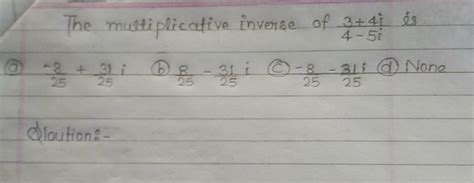 The multiplicative inverse of 3+4i/4-5i is
ⓐ -8/25 + 31/25 i ⓑ 8/25 - 31/25 i ⓒ -8/25 - 31i/25 ⓓ None
Sloution:-